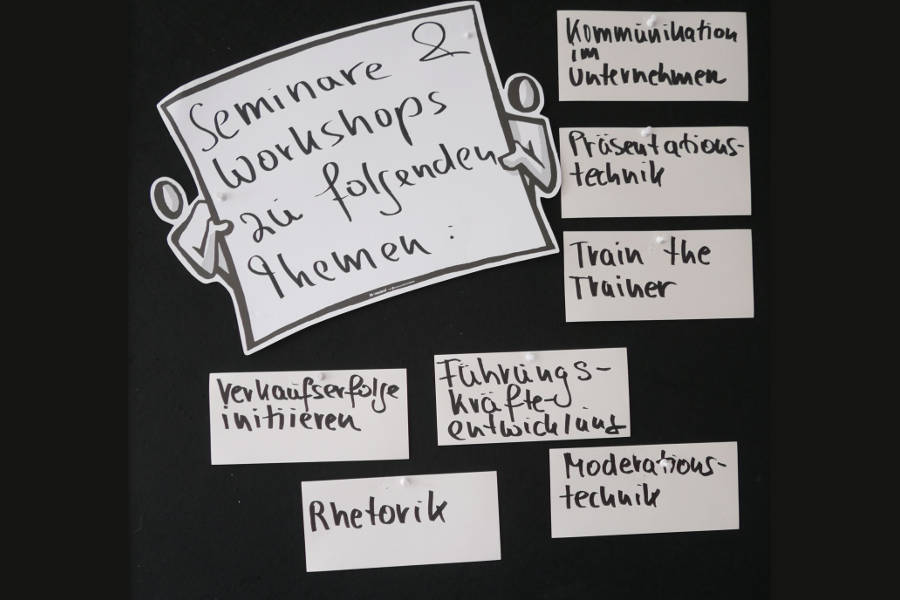 Seminare &
Workshops
zu folgenden
Themen:
Kommunikation
im
Unternehmen
Präsentations-
technik
Train the
Trainer
Verkaufserfolge
initiieren
Führungs-
kräfte-
entwicklung
Moderations-
technik
Rhetorik